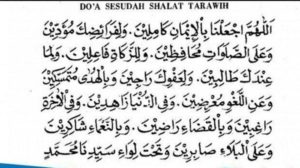 DO'A SESUDAH SHALAT TARAWIH
اَللّٰهُمَّ اجْعَلْنَا بِالْإِيْمَانِ كَامِلِيْنَ. وَلِفَرَائِضِكَ مُؤَدِّيْنَ
وَعَلَى الصَّلَوَاتِ مُحَافِظِيْنَ. وَلِلزَّكَاةِ فَاعِلِيْنَ. وَلِمَا
عِنْدَكَ طَالِبِيْنَ. وَلِعَفْوِكَ رَاجِيْنَ. وَبِالْهُدَى مُتَمَسِّكِيْنَ
وَعَنِ اللَّغْوِ مُعْرِضِيْنَ. وَفِى الدُّنْيَا زَاهِدِيْنَ. وَفِى الْآخِرَةِ
رَاغِبِيْنَ. وَبِالْقَضَاءِ رَاضِيْنَ. وَبِالنَّعْمَاءِ شَاكِرِيْنَ
وَعَلَى الْبَلَاءِ صَابِرِيْنَ. وَتَحْتَ لِوَاءِ سَيِّدِنَا مُحَمَّدٍ